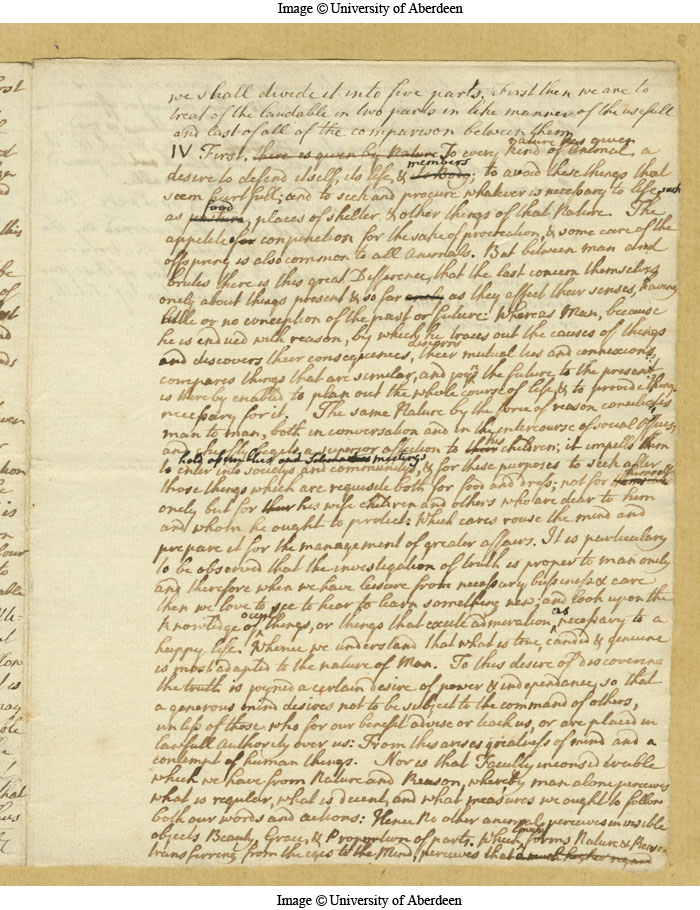 Image © University of Aberdeen
we shall divide it into five parts. First then we are to
treat of the laudable in two parts in like manner of the usefull
and last of all of the comparison between them
nature has given
IV First. there is given by Nature To every kind of Animal, a
members
desire to defend itself, its life, & its Body; to avoid these things that
seem hurtfull; and to seek and procure whatever is necessary to life such
food
as pasture, places of shelter & other things of that Nature. The
appetite of conjunction for the sake of procreation, & some care of the
offspring is also common to all Animals. But between man and
brutes there is this great Difference, that the last concern themselves
onely about things present & so far onely as they affect their senses, having
little or no conception of the past or future: Whereas Man, because
he is endued with reason, by which he traces out the causes of things
discerns
and discovers their consequences, their mutual ties and connexions,
compares things that are similar, and joyn the future to the present;
is thereby enabled to plan out the whole course of life & to provide things
necessary for it. The same Nature by the force of reason conciliates
man to man, both in conversation and in the intercourse of social Offices,
and chiefly begets a superior affection to their his children; it impells them
hold assemblies and meetings
to enter into societys and communitys, & for these purposes to seek after
himself
those things which are requisite both for food and dress; not for themselves
onely but for their his wife children and others who are dear to him
and whom he ought to protect: Which cares rouse the mind and
prepare it for the management of greater affairs. It is particulary
to be observed that the investigation of truth is proper to man onely
and therefore when we have leisure from necessary business & care
then we love to see to hear to learn something new; and look upon the
occult as
knowledge of things, or things that excite admiration, necessary to a
happy life. Whence we understand that what is true, candid & genuine
is most adapted to the nature of Man. To this desire of Discovering
the truth is joyned a certain desire of power & independance, so that
a generous mind desires not to be subject to the command of others,
unless of those who for our benefit advise or teach us, or are placed in
lawfull Authority over us: From this arises greatness of mind and a
contempt of human things. Nor is that Faculty inconsiderable
which we have from Nature and Reason, whereby man alone perceives
what is regular, what is decent, and what measures we ought to follow
both our words and actions: Hence No other animal perceives in visible
objects Beauty, Grace, & Proportion of parts. Which forms Nature & Reason
transferring from the eyes to the Mind, perceives that a much higher regard
Image © University of Aberdeen